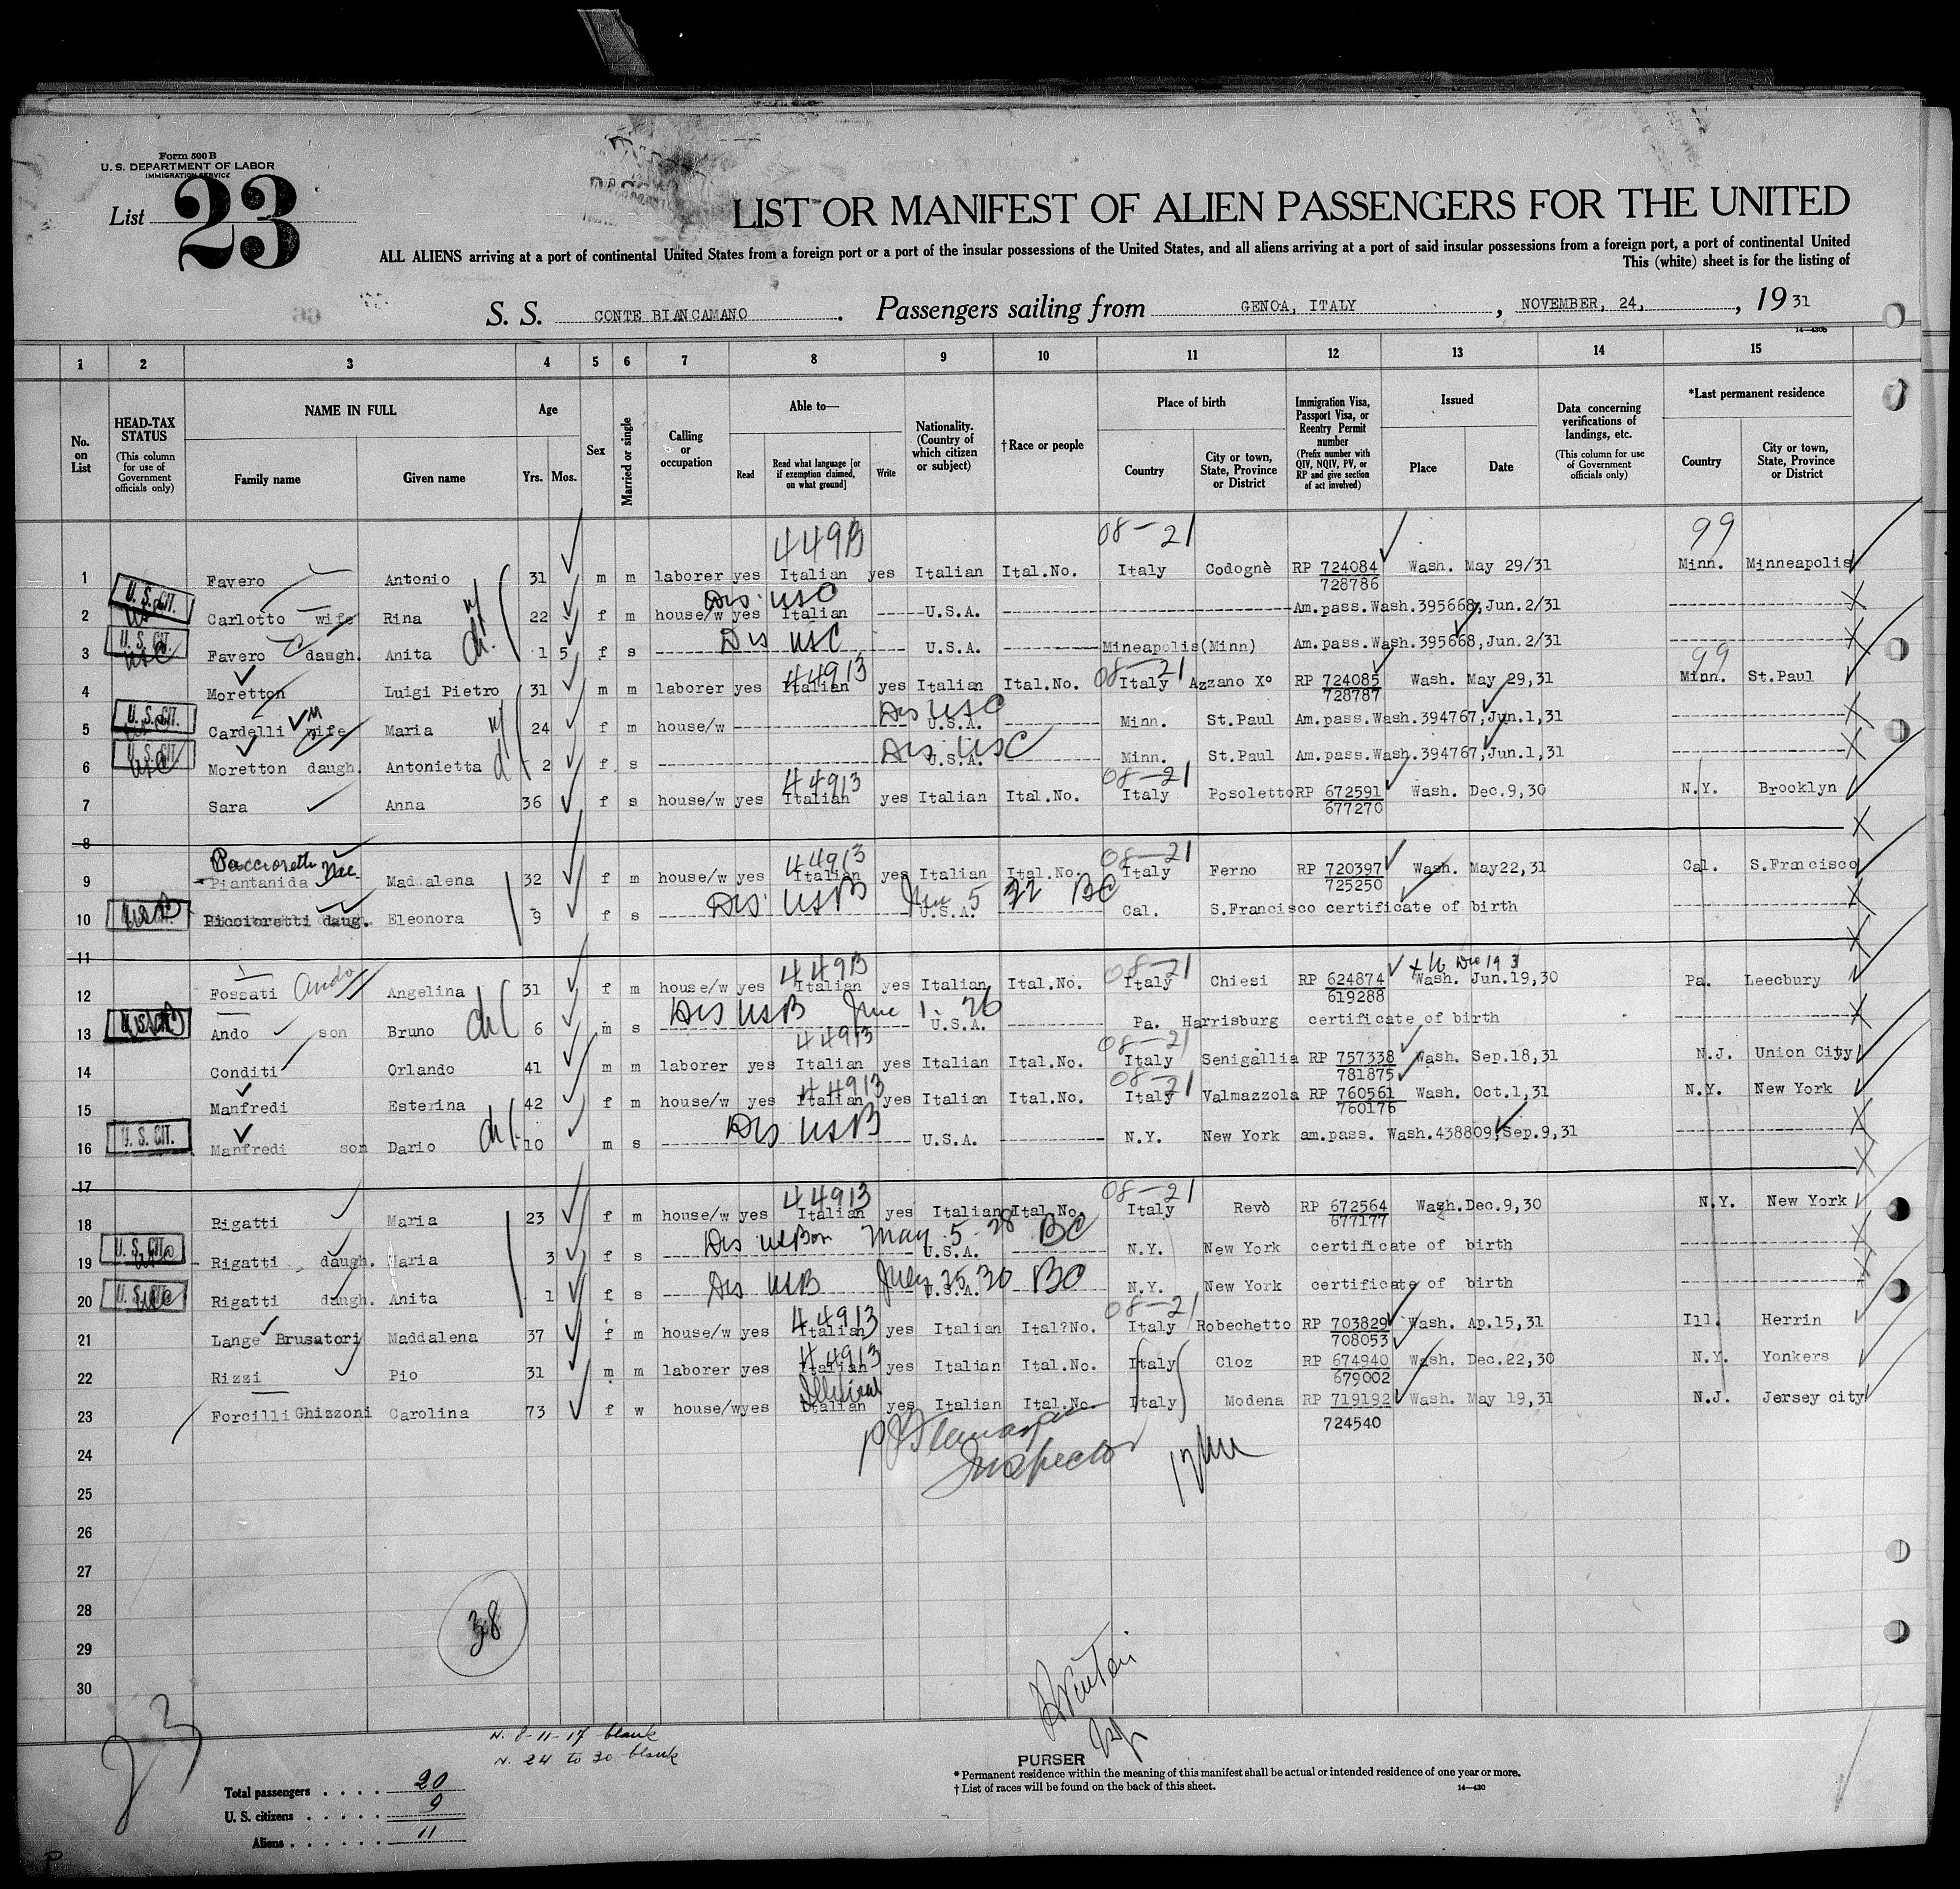 Form 500 B
U. S. DEPARTMENT OF LABOR
IMMIGRATION SERVICE
List 23
LIST OR MANIFEST OF ALIEN PASSENGERS FOR THE UNITED
ALL ALIENS arriving at a port of continental United States from a foreign port or a port of the insular possessions of the United States, and all aliens arriving at a port of said insular possessions from a foreign port, a port of continental United
This (white) sheet is for the listing of
S. S. CONTE BIANCAMANO . Passengers sailing from GENOA, ITALY , NOVEMBER, 24, , 19 31
14—430b
1 2 3 4 5 6 7 8 9 10 11 12 13 14 15
No. on List
HEAD-TAX STATUS (This column for use of Government officials only)
NAME IN FULL Family name Given name
Age Yrs. Mos.
Sex
Married or single
Calling or occupation
Able to— Read Read what language [or if exemption claimed, on what ground] Write
Nationality. (Country of which citizen or subject)
†Race or people
Place of birth Country City or town, State, Province or District
Immigration Visa, Passport Visa, or Reentry Permit number (Prefix number with QIV, NQIV, PV, or RP and give section of act involved)
Issued Place Date
Data concerning verifications of landings, etc. (This column for use of Government officials only)
*Last permanent residence Country City or town, State, Province or District
449B 08-21 99
1 Favero Antonio 31 m m laborer yes Italian yes Italian Ital.No. Italy Codognè RP 724084 Wash. May 29/31 Minn. Minneapolis
728786
U. S. CIT. Dis USC
2 Carlotto wife Rina 22 f m house/w yes Italian U.S.A. Am.pass.Wash.395668,Jun.2/31
U. S. CIT. USC Dis USC
3 Favero daugh. Anita 1 5 f s U.S.A. Mineapolis(Minn) Am.pass.Wash.395668,Jun.2/31
449B 08-21 99
4 Moretton Luigi Pietro 31 m m laborer yes Italian yes Italian Ital.No. Italy Azzano Xº RP 724085 Wash. May 29,31 Minn. St.Paul
728787
U. S. CIT. Dis USC
5 Cardelli wife Maria 24 f m house/w U.S.A. Minn. St.Paul Am.pass.Wash.394767,Jun.1,31
U. S. CIT. USC Dis USC
6 Moretton daugh. Antonietta 2 f s U.S.A. Minn. St.Paul Am.pass.Wash.394767,Jun.1,31
449B 08-21
7 Sara Anna 36 f s house/w yes Italian yes Italian Ital.No. Italy Posoletto RP 672591 Wash. Dec.9,30 N.Y. Brooklyn
677270
8
Paccioretti nee 449B 08-21
9 Piantanida Maddalena 32 f m house/w yes Italian yes Italian Ital.No. Italy Ferno RP 720397 Wash. May22,31 Cal. S.Francisco
725250
Dis USB Jun 5 22 BC
10 Piccioretti daug. Eleonora 9 f s U.S.A. Cal. S.Francisco certificate of birth
11
449B 08-21
12 Fossati Ando Angelina 31 f m house/w yes Italian yes Italian Ital.No. Italy Chiesi RP 624874 Wash. Jun.19,30 Pa. Leecbury
619288
Dis USB June 1. 26
13 Ando son Bruno 6 m s U.S.A. Pa. Harrisburg certificate of birth
449B 08-21
14 Conditi Orlando 41 m m laborer yes Italian yes Italian Ital.No. Italy Senigallia RP 757338 Wash. Sep.18,31 N.J. Union City
781875
449B 08-21
15 Manfredi Esterina 42 f m house/w yes Italian yes Italian Ital.No. Italy Valmazzola RP 760561 Wash. Oct.1,31 N.Y. New York
760176
U. S. CIT. Dis USB
16 Manfredi son Dario 10 m s U.S.A. N.Y. New York am.pass. Wash.438809,Sep.9,31
17
449B 08-21
18 Rigatti Maria 23 f m house/w yes Italian yes Italian Ital.No. Italy Revò RP 672564 Wash.Dec.9,30 N.Y. New York
677177
U. S. CIT. Dis May 5-28 BC
19 Rigatti daugh. Maria 3 f s U.S.A. N.Y. New York certificate of birth
U. S. CIT. Dis USB July 25,30 BC
20 Rigatti daugh. Anita 1 f s U.S.A. N.Y. New York certificate of birth
449B 08-21
21 Lange Brusatori Maddalena 37 f m house/w yes Italian yes Italian Ital?No. Italy Robechetto RP 703829 Wash. Ap.15,31 Ill. Herrin
708053
449B
22 Rizzi Pio 31 m m laborer yes Italian yes Italian Ital.No. Italy Cloz RP 674940 Wash. Dec.22,30 N.Y. Yonkers
679002
23 Forcilli Ghizzoni Carolina 73 f w house/w yes Italian yes Italian Ital.No. Italy Modena RP 719192 Wash. May 19,31 N.J. Jersey city
724540
24
Inspector
25
26
27
28
38
29
30
23
N. 8-11-17 blank
N. 24 to 30 blank
PURSER
* Permanent residence within the meaning of this manifest shall be actual or intended residence of one year or more.
† List of races will be found on the back of this sheet. 14—430
Total passengers . . . . 20
U. S. citizens . . . . . 9
Aliens . . . . . . 11